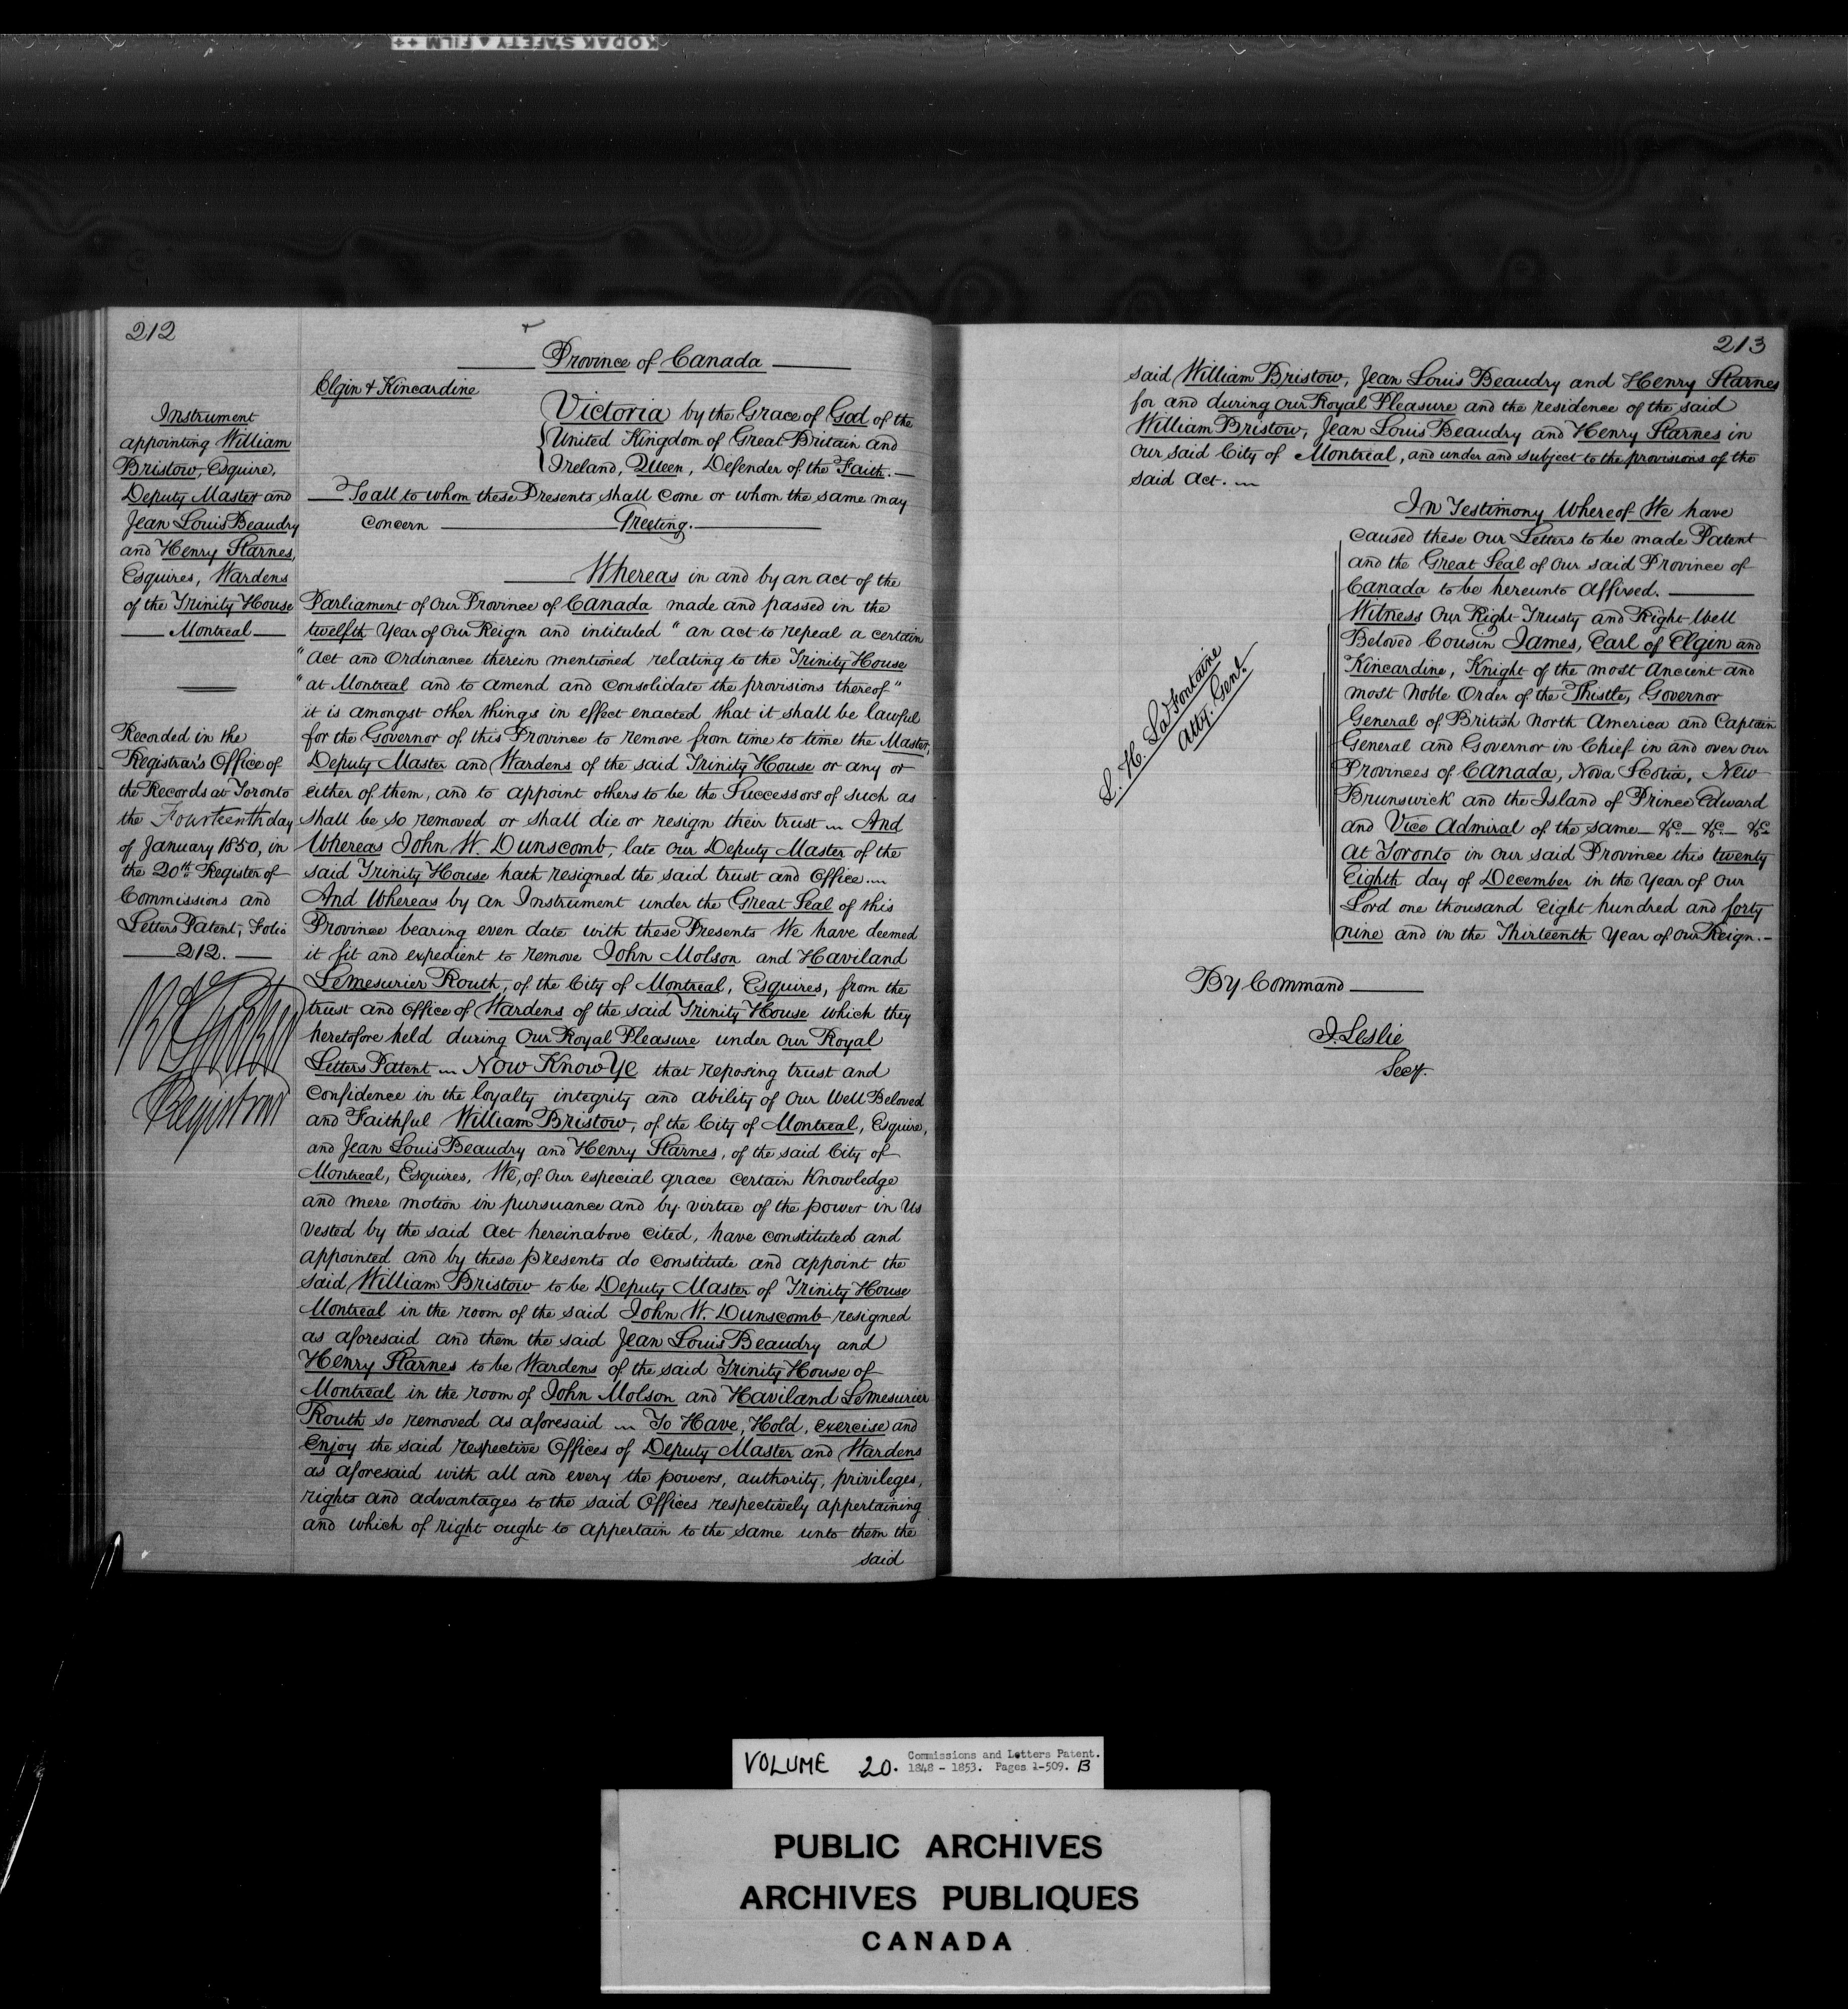 KODAK SAFETY FILM ++
212
Province of Canada
Elgin & Kincardine
Victoria by the Grace of God of the
United Kingdom of Great Britain and
Ireland, Queen, Defender of the Faith.
To all to whom these Presents shall come or whom the same may
concern Greeting.
Whereas in and by an act of the
Parliament of Our Province of Canada made and passed in the
twelfth Year of Our Reign and intituled "an act to repeal a certain
"Act and Ordinance therein mentioned relating to the Trinity House
"at Montreal and to amend and consolidate the provisions thereof"
it is amongst other things in effect enacted that it shall be lawful
for the Governor of this Province to remove from time to time the Master,
Deputy Master and Wardens of the said Trinity House or any or
either of them, and to appoint others to be the Successors of such as
shall be so removed or shall die or resign their trust — And
Whereas John W. Dunscomb, late Our Deputy Master of the
said Trinity House hath resigned the said trust and Office.
And Whereas by an Instrument under the Great Seal of this
Province bearing even date with these Presents We have deemed
it fit and expedient to remove John Molson and Haviland
Lemesurier Routh, of the City of Montreal, Esquires, from the
trust and Office of Wardens of the said Trinity House which they
heretofore held during Our Royal Pleasure under Our Royal
Letters Patent — Now Know Ye that reposing trust and
confidence in the loyalty integrity and ability of Our Well Beloved
and Faithful William Bristow, of the City of Montreal, Esquire,
and Jean Louis Beaudry and Henry Starnes, of the said City of
Montreal, Esquires, We, of Our especial grace certain Knowledge
and mere motion in pursuance and by virtue of the power in Us
vested by the said Act hereinabove cited, have constituted and
appointed and by these presents do constitute and appoint the
said William Bristow to be Deputy Master of Trinity House
Montreal in the room of the said John W. Dunscomb resigned
as aforesaid and them the said Jean Louis Beaudry and
Henry Starnes to be Wardens of the said Trinity House of
Montreal in the room of John Molson and Haviland Lemesurier
Routh so removed as aforesaid — To Have, Hold, exercise and
Enjoy the said respective Offices of Deputy Master and Wardens
as aforesaid with all and every the powers, authority, privileges,
rights and advantages to the said Offices respectively appertaining
and which of right ought to appertain to the same unto them the
said
Instrument
appointing William
Bristow, Esquire,
Deputy Master and
Jean Louis Beaudry
and Henry Starnes,
Esquires, Wardens
of the Trinity House
Montreal
Recorded in the
Registrar's Office of
the Records at Toronto
the Fourteenth day
of January 1850, in
the 20th Register of
Commissions and
Letters Patent, Folio
212.
Registrar
213
said William Bristow, Jean Louis Beaudry and Henry Starnes
for and during Our Royal Pleasure and the residence of the said
William Bristow, Jean Louis Beaudry and Henry Starnes in
Our said City of Montreal, and under and subject to the provisions of the
said Act.
In Testimony Whereof We have
caused these Our Letters to be made Patent
and the Great Seal of Our said Province of
Canada to be hereunto affixed.
Witness Our Right Trusty and Right Well
Beloved Cousin James, Earl of Elgin and
Kincardine, Knight of the most Ancient and
most Noble Order of the Thistle, Governor
General of British North America and Captain
General and Governor in Chief in and over Our
Provinces of Canada, Nova Scotia, New
Brunswick and the Island of Prince Edward
and Vice Admiral of the same — &c — &c — &c
At Toronto in Our said Province this twenty
Eighth day of December in the Year of Our
Lord one thousand Eight hundred and forty
nine and in the Thirteenth Year of Our Reign.—
L. H. LaFontaine
Atty. Genl.
By Command
J. Leslie
Secy.
VOLUME 20. Commissions and Letters Patent.
1848 - 1853. Pages 1-509. B
PUBLIC ARCHIVES
ARCHIVES PUBLIQUES
CANADA